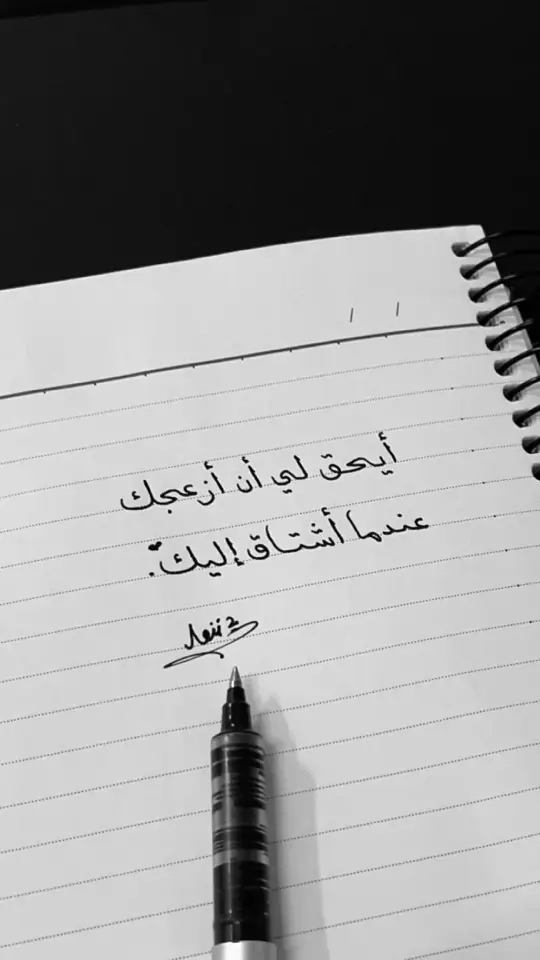 أيحق لي أن أزعجك
عندما أشتاق إليك.